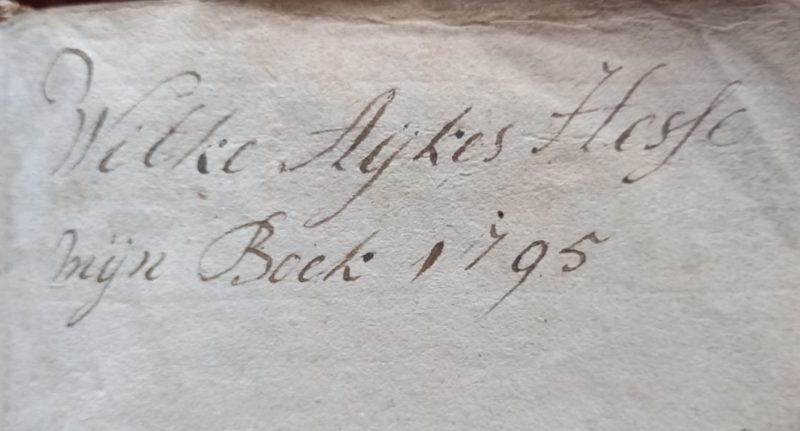 Wilke Aÿkes Hesse
mÿn Boek 1795